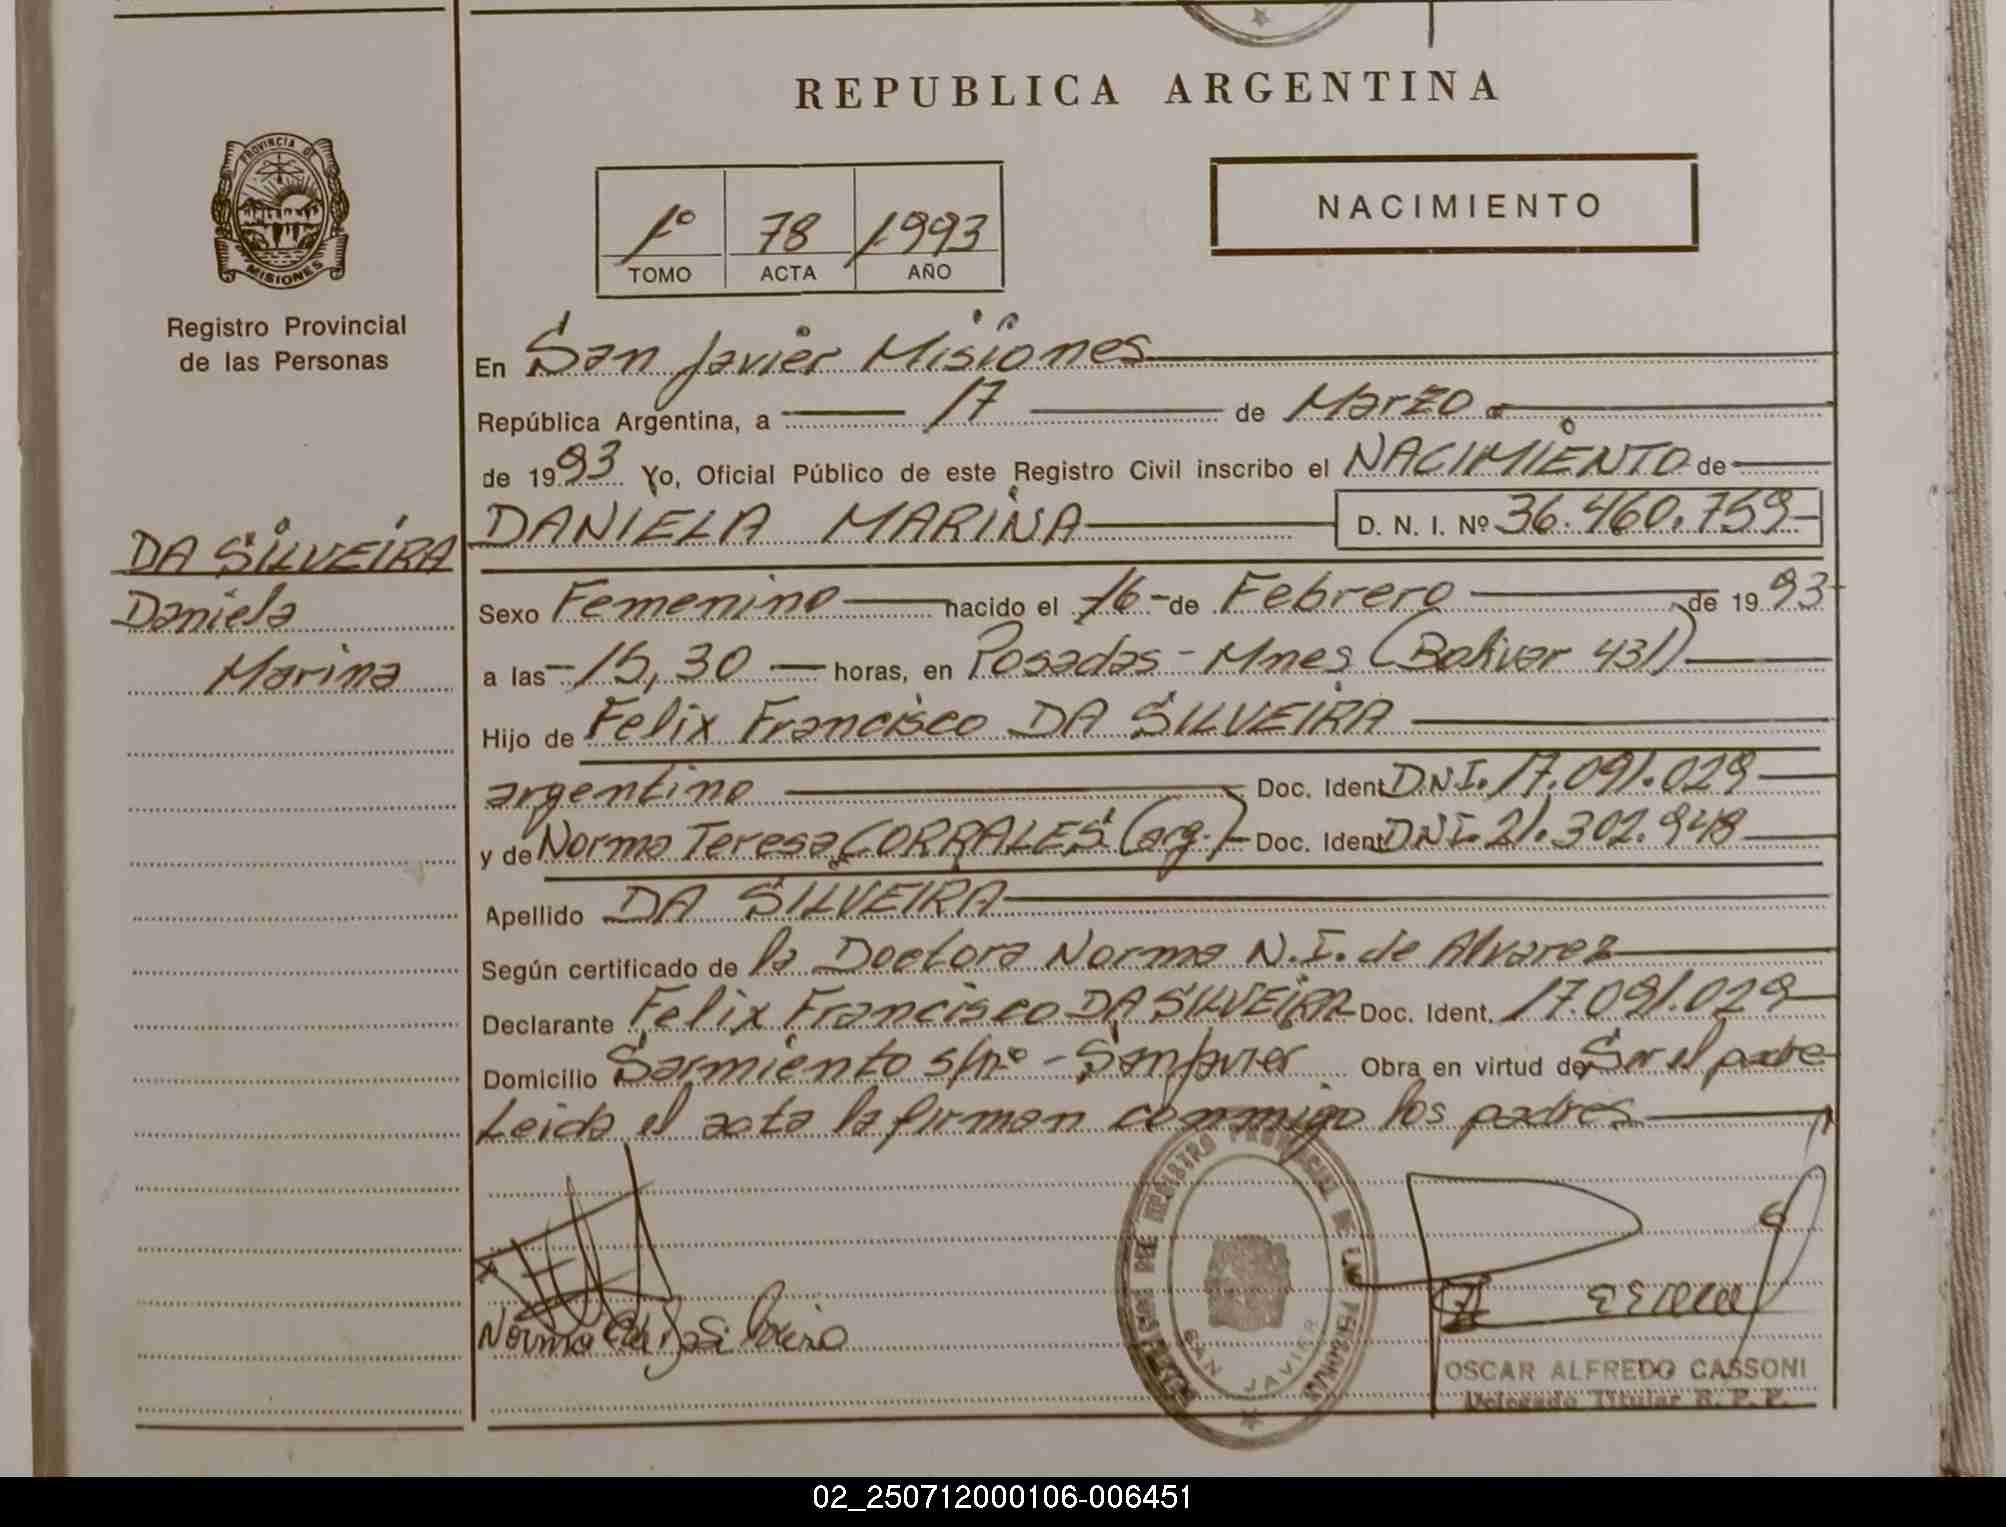 REPUBLICA ARGENTINA
PROVINCIA DE
MISIONES
Registro Provincial
de las Personas
1º 78 1993
TOMO ACTA AÑO
NACIMIENTO
En San Javier Misiones
República Argentina, a 17 de Marzo
de 1993 Yo, Oficial Público de este Registro Civil inscribo el NACIMIENTO de
DA SILVEIRA
Daniela
Marina
DANIELA MARINA D. N. I. Nº 36.460.759
Sexo Femenino nacido el 16 de Febrero de 1993
a las 15,30 horas, en Posadas - Mnes (Bolivar 431)
Hijo de Felix Francisco DA SILVEIRA
argentino Doc. Ident DNI. 17.091.029
y de Norma Teresa CORRALES (arg.) Doc. Ident DNI. 21.302.948
Apellido DA SILVEIRA
Según certificado de la Doctora Norma N.I. de Alvarez
Declarante Felix Francisco DA SILVEIRA Doc. Ident. 17.091.029
Domicilio Sarmiento s/nº - San Javier Obra en virtud de Ser el padre
Leida el acta la firman conmigo los padres
DEL REGISTRO PROVINCIAL DE LAS PERSONAS
SAN JAVIER
Norma
OSCAR ALFREDO CASSONI
Delegado Titular R. P. P.
02_250712000106-006451